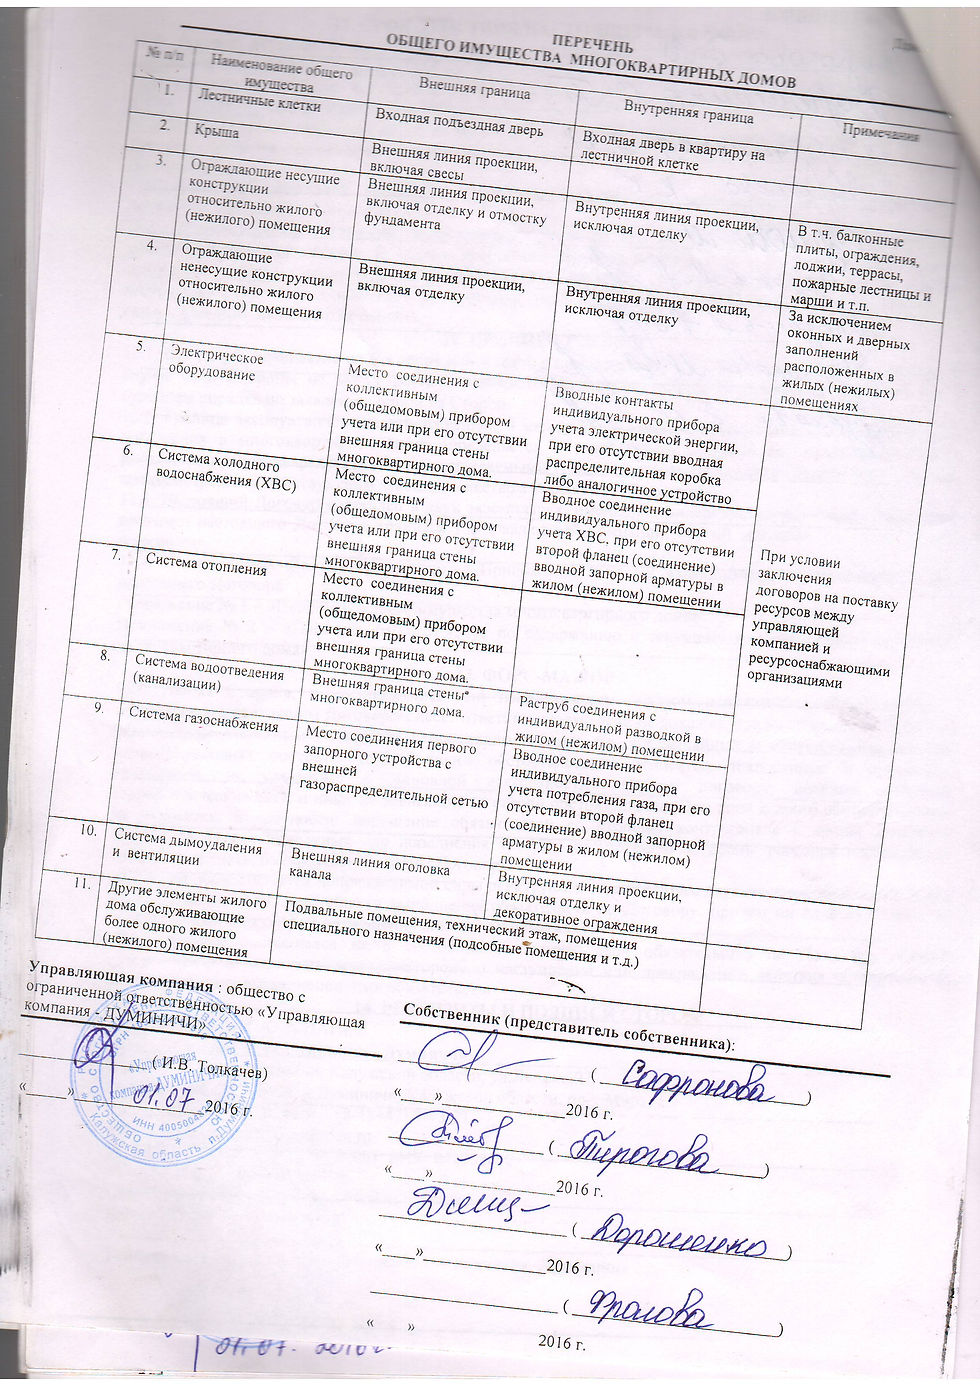 ПЕРЕЧЕНЬ
ОБЩЕГО ИМУЩЕСТВА МНОГОКВАРТИРНЫХ ДОМОВ
№ п/п
Наименование общего
имущества
Внешняя граница
Внутренняя граница
Примечания
1.
Лестничные клетки
Входная подъездная дверь
Входная дверь в квартиру на
лестничной клетке
2.
Крыша
Внешняя линия проекции,
включая свесы
3.
Ограждающие несущие
конструкции
относительно жилого
(нежилого) помещения
Внешняя линия проекции,
включая отделку и отмостку
фундамента
Внутренняя линия проекции,
исключая отделку
В т.ч. балконные
плиты, ограждения,
лоджии, террасы,
пожарные лестницы и
марши и т.п.
4.
Ограждающие
ненесущие конструкции
относительно жилого
(нежилого) помещения
Внешняя линия проекции,
включая отделку
Внутренняя линия проекции,
исключая отделку
За исключением
оконных и дверных
заполнений
расположенных в
жилых (нежилых)
помещениях
5.
Электрическое
оборудование
Место соединения с
коллективным
(общедомовым) прибором
учета или при его отсутствии
внешняя граница стены
многоквартирного дома.
Вводные контакты
индивидуального прибора
учета электрической энергии,
при его отсутствии вводная
распределительная коробка
либо аналогичное устройство
При условии
заключения
договоров на поставку
ресурсов между
управляющей
компанией и
ресурсоснабжающими
организациями
6.
Система холодного
водоснабжения (ХВС)
Место соединения с
коллективным
(общедомовым) прибором
учета или при его отсутствии
внешняя граница стены
многоквартирного дома.
Вводное соединение
индивидуального прибора
учета ХВС. при его отсутствии
второй фланец (соединение)
вводной запорной арматуры в
жилом (нежилом) помещении
7.
Система отопления
Место соединения с
коллективным
(общедомовым) прибором
учета или при его отсутствии
внешняя граница стены
многоквартирного дома.
8.
Система водоотведения
(канализации)
Внешняя граница стены
многоквартирного дома.
Раструб соединения с
индивидуальной разводкой в
жилом (нежилом) помещении
9.
Система газоснабжения
Место соединения первого
запорного устройства с
внешней
газораспределительной сетью
Вводное соединение
индивидуального прибора
учета потребления газа, при его
отсутствии второй фланец
(соединение) вводной запорной
арматуры в жилом (нежилом)
помещении
10.
Система дымоудаления
и вентиляции
Внешняя линия оголовка
канала
Внутренняя линия проекции,
исключая отделку и
декоративное ограждения
11.
Другие элементы жилого
дома обслуживающие
более одного жилого
(нежилого) помещения
Подвальные помещения, технический этаж, помещения
специального назначения (подсобные помещения и т.д.)
Управляющая компания : общество с
ограниченной ответственностью «Управляющая
компания - ДУМИНИЧИ»
( И.В. Толкачев)
«____» 01.07 2016 г.
«Управляющая
компания ДУМИНИЧИ»
Калужская область п.Думиничи
Собственник (представитель собственника):
( Сафронова )
«____»______________2016 г.
( Пирогова )
«____»______________2016 г.
( Дорошенко )
«____»______________2016 г.
( Фролова )
« » 2016 г.
01.07. 2016 г.